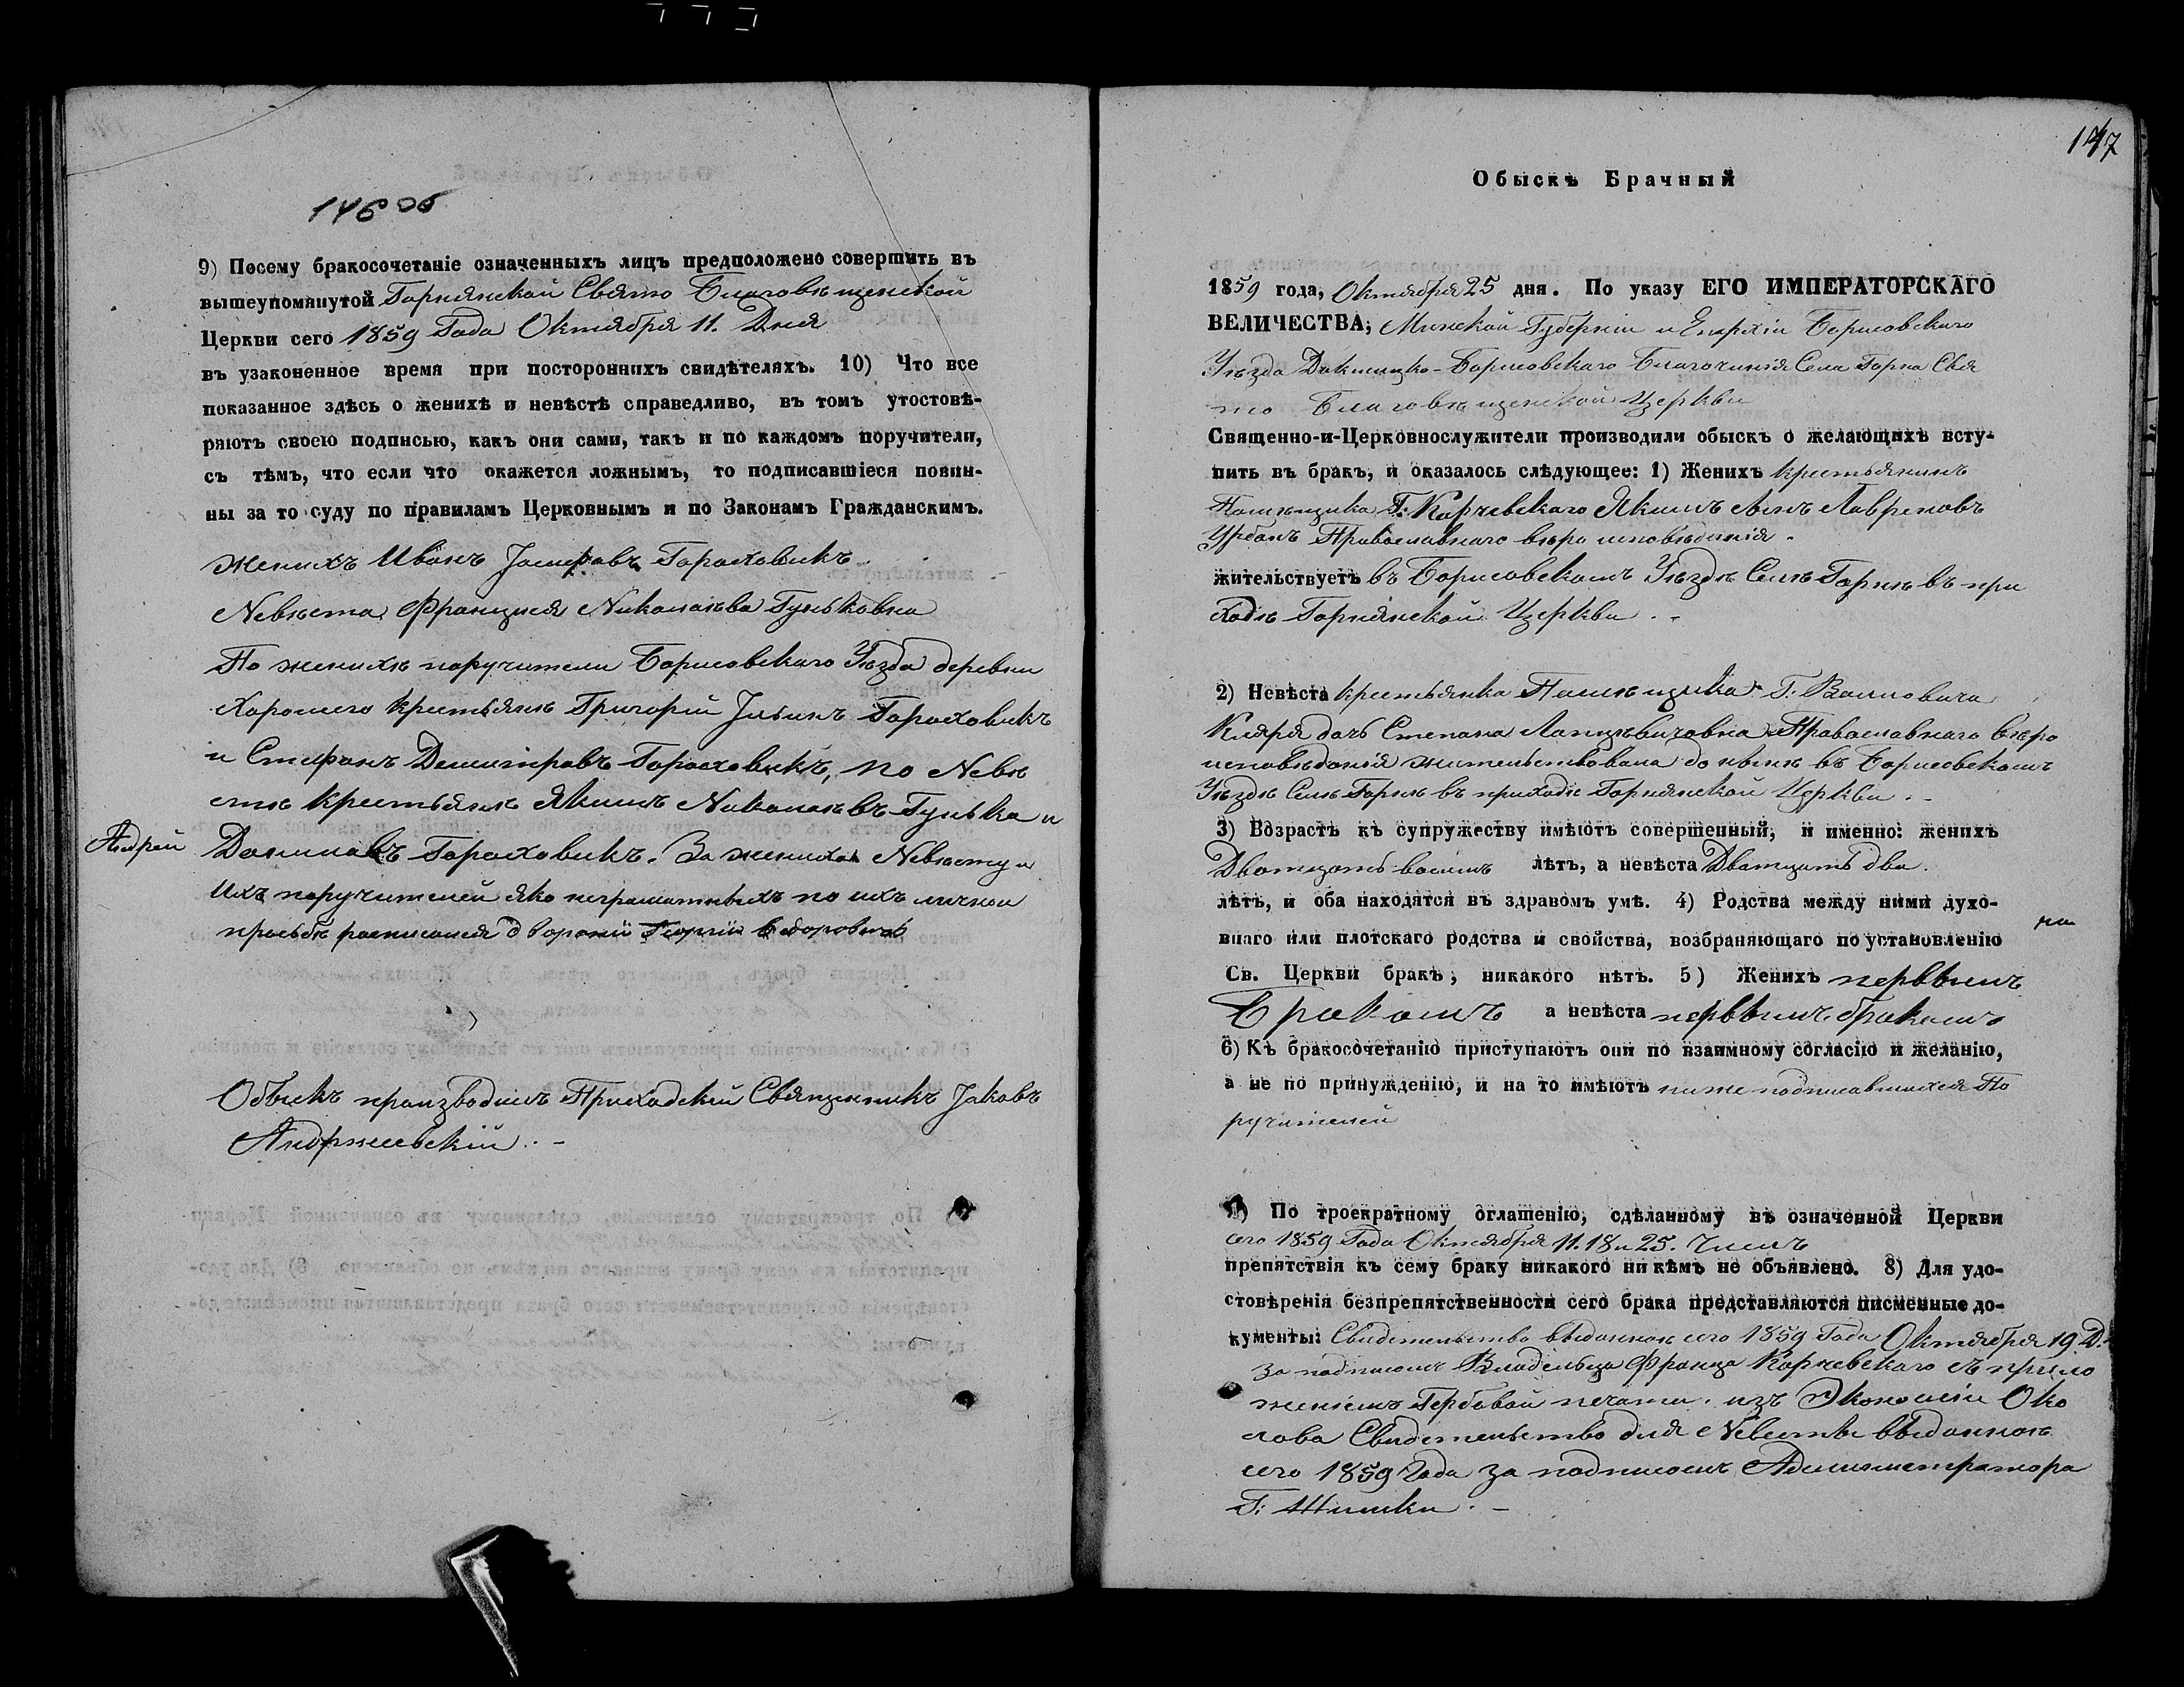 146 об
9) Посему бракосочетаніе означенныхъ лицъ предположено совершить въ
вышеупомянутой Горнянской Свято Благовѣщенской
Церкви сего 1859 Года Октября 11. Дня
въ узаконенное время при постороннихъ свидѣтеляхъ. 10) Что все
показанное здѣсь о женихѣ и невѣстѣ справедливо, въ томъ утостовѣ-
ряютъ своею подписью, какъ они сами, такъ и по каждомъ поручители,
съ тѣмъ, что если что окажется ложнымъ, то подписавшіеся повин-
ны за то суду по правиламъ Церковнымъ и по Законамъ Гражданскимъ.
Женихъ Иванъ Гораховикъ
Nевѣста Францися Nиколаева Гуньковна
По женихѣ поручители Борисовскаго Уѣзда деревни
Хорошего крестьяне Григорій Jльинъ Гораховикъ
и Стефанъ Гораховикъ, по Nевѣ
стѣ крестьяне Якимъ Nиколаевъ Гунька и
Андрей Гораховикъ. За жениха Nевѣсту и
ихъ поручителей яко неграмотныхъ по ихъ личной
просьбѣ росписался дворянинъ Георгій Ѳедоровичъ
Обыскъ производилъ Приходскій Священникъ Jаковъ
Андржеевскій. –
147
Обыскъ Брачный
1859 года, Октября 25 дня. По указу ЕГО ИМПЕРАТОРСКАГО
ВЕЛИЧЕСТВА, Минской Губерніи и Епархіи Борисовскаго
Уѣзда Докшицко-Борисовскаго Благочинія Села Горна Свя
то Благовѣщенской Церкви
Священно-и-Церковнослужители производили обыскъ о желающихъ всту-
пить въ бракъ, и оказалось слѣдующее: 1) Женихъ крестьянинъ
Помѣщика Г: Корчевскаго Якимъ Лавреновъ
Урбанъ Православнаго вѣроисповѣданія.
жительствуетъ въ Борисовскомъ Уѣздѣ Селѣ Горнѣ въ при
ходѣ Горнянской Церкви. –
2) Невѣста крестьянка Помѣщика Г: Волловича
Кляря дочь Степана Лапцевичовна Православнаго вѣро
исповѣданія жительствовала до нынѣ въ Борисовскомъ
Уѣздѣ Селѣ Горнѣ въ приходѣ Горнянской Церкви. –
3) Возрастъ къ супружеству имѣютъ совершенный, и именно: женихъ
Дватцать восемь лѣтъ, а невѣста Дватцать два.
лѣтъ, и оба находятся въ здравомъ умѣ. 4) Родства между ними духо-
внаго или плотскаго родства и свойства, возбраняющаго по установленію
Св. Церкви бракъ, никакого нѣтъ. 5) Женихъ первымъ
Бракомъ а невѣста первымъ бракомъ
6) Къ бракосочетанію приступаютъ они по взаимному согласію и желанію,
а не по принуждению, и на то имѣютъ ниже подписавшихся По
ручителей
7) По троекратному оглашенію, сдѣланному въ означенной Церкви
сего 1859 Года Октября 11. 18 и 25. Числъ
препятствія къ сему браку никакого ни кѣмъ не объявлено. 8) Для удо-
стовѣренія безпрепятственности сего брака представляются писменные до-
кументы: Свидетельство выданное сего 1859 Года Октября 19. Д.
за подписомъ Владельца Франца Корчевскаго съ прило
женіемъ Гербовой печати. изъ Экономіи Око
лова Свидетельство для Nевесты выданное
сего 1859 Года за подписомъ Администратора
Г: